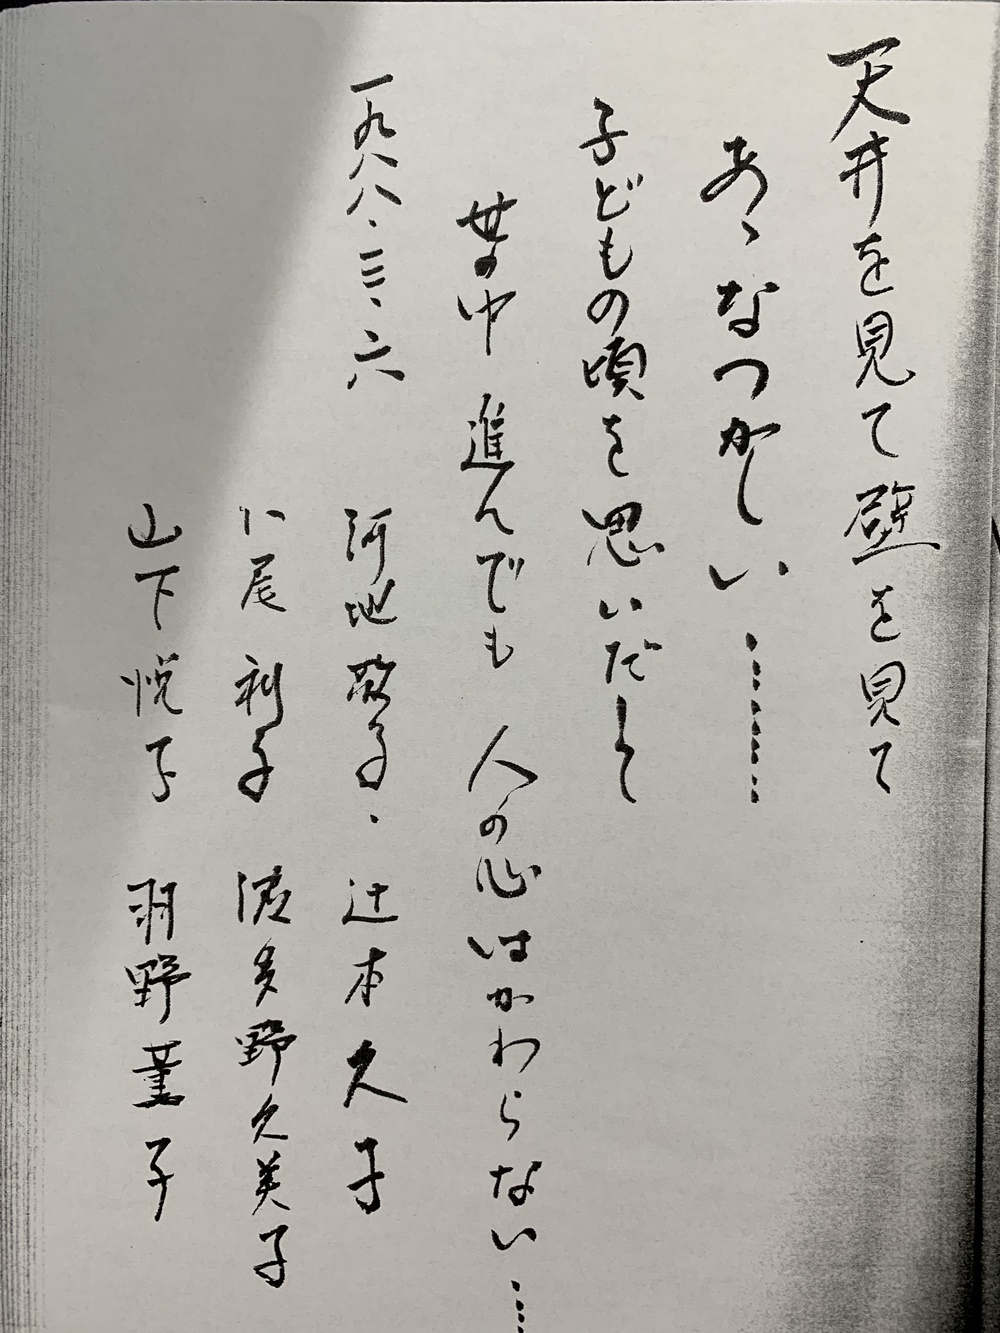 天井を見て壁を見て
あゝなつかしい………
子どもの頃を思いだして
世の中 進んでも 人の心はかわらない…
一九八八、三、六
河地 敬子、辻本久子
仁尾 利子 波多野久美子
山下 悦子 羽野薫子